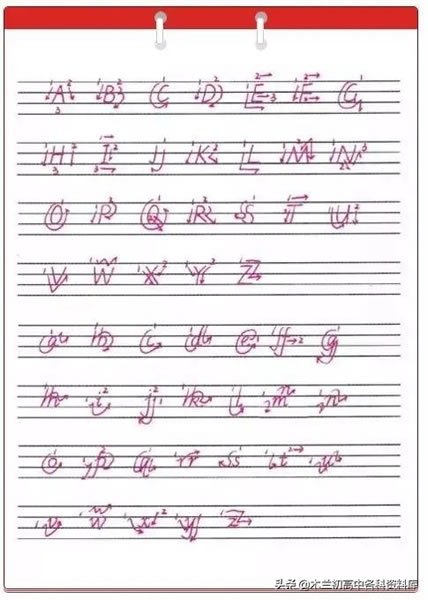 A B C D E F G
H I J K L M N
O P Q R S T U
V W X Y Z
a b c d e f g
h i j k l m n
o p q r s t u
v w x y z
头条 @木兰初高中各科资料库